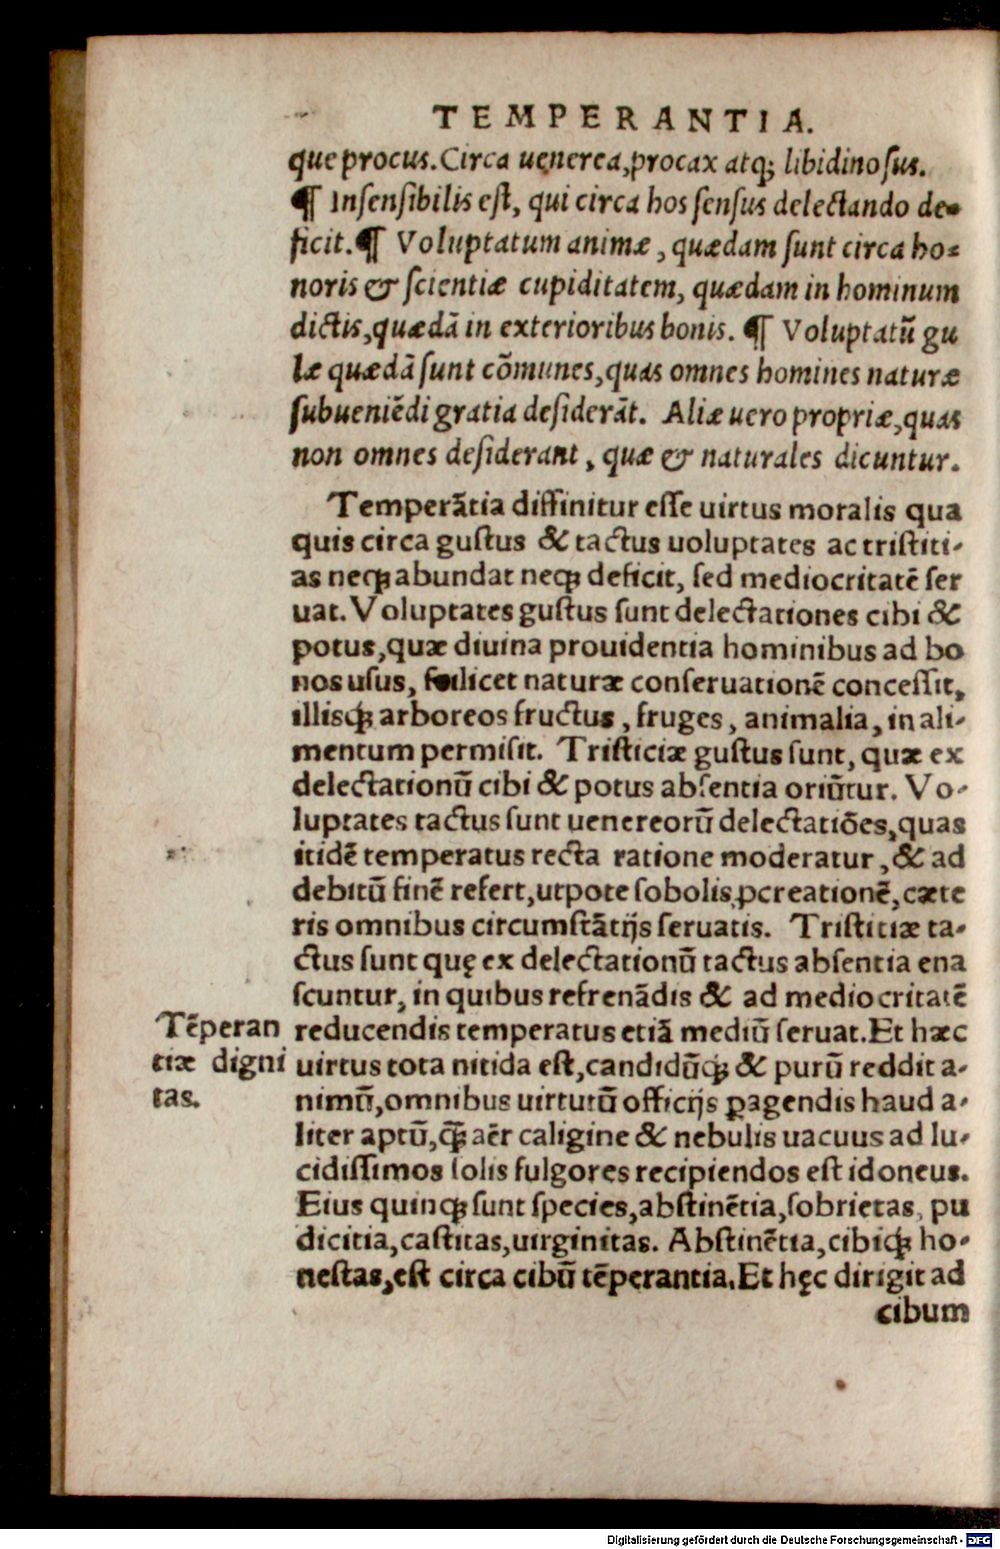 TEMPERANTIA.
que procus. Circa uenerea, procax atq; libidinosus.
¶ Insensibilis est, qui circa hos sensus delectando de-
ficit. ¶ Voluptatum animæ, quædam sunt circa ho-
noris & scientiæ cupiditatem, quædam in hominum
dictis, quædā in exterioribus bonis. ¶ Voluptatū gu
læ quædā sunt cōmunes, quas omnes homines naturæ
subueniēdi gratia desiderāt. Aliæ uero propriæ, quas
non omnes desiderant, quæ & naturales dicuntur.
Temperātia diffinitur esse uirtus moralis qua
quis circa gustus & tactus uoluptates ac tristiti-
as neq; abundat neq; deficit, sed mediocritatē ser
uat. Voluptates gustus sunt delectationes cibi &
potus, quæ diuina prouidentia hominibus ad bo
nos usus, scilicet naturæ conseruationē concessit,
illisq; arboreos fructus, fruges, animalia, in ali-
mentum permisit. Tristiciæ gustus sunt, quæ ex
delectationū cibi & potus absentia oriūtur. Vo-
luptates tactus sunt uenereorū delectatiōes, quas
itidē temperatus recta ratione moderatur, & ad
debitū finē refert, utpote sobolis ꝓcreationē, cæte
ris omnibus circumstātijs seruatis. Tristitiæ ta-
ctus sunt quę ex delectationū tactus absentia ena
scuntur, in quibus refrenādis & ad mediocritatē
reducendis temperatus etiā mediū seruat. Et hæc
uirtus tota nitida est, candidūq; & purū reddit a-
nimū, omnibus uirtutū officijs ꝑagendis haud a-
liter aptū, q̄ aër caligine & nebulis uacuus ad lu-
cidissimos solis fulgores recipiendos est idoneus.
Eius quinq; sunt species, abstinētia, sobrietas, pu
dicitia, castitas, uirginitas. Abstinētia, cibiq; ho-
nestas, est circa cibū tēperantia. Et hęc dirigit ad
cibum
Tēperan
tiæ digni
tas.
Digitalisierung gefördert durch die Deutsche Forschungsgemeinschaft - DFG